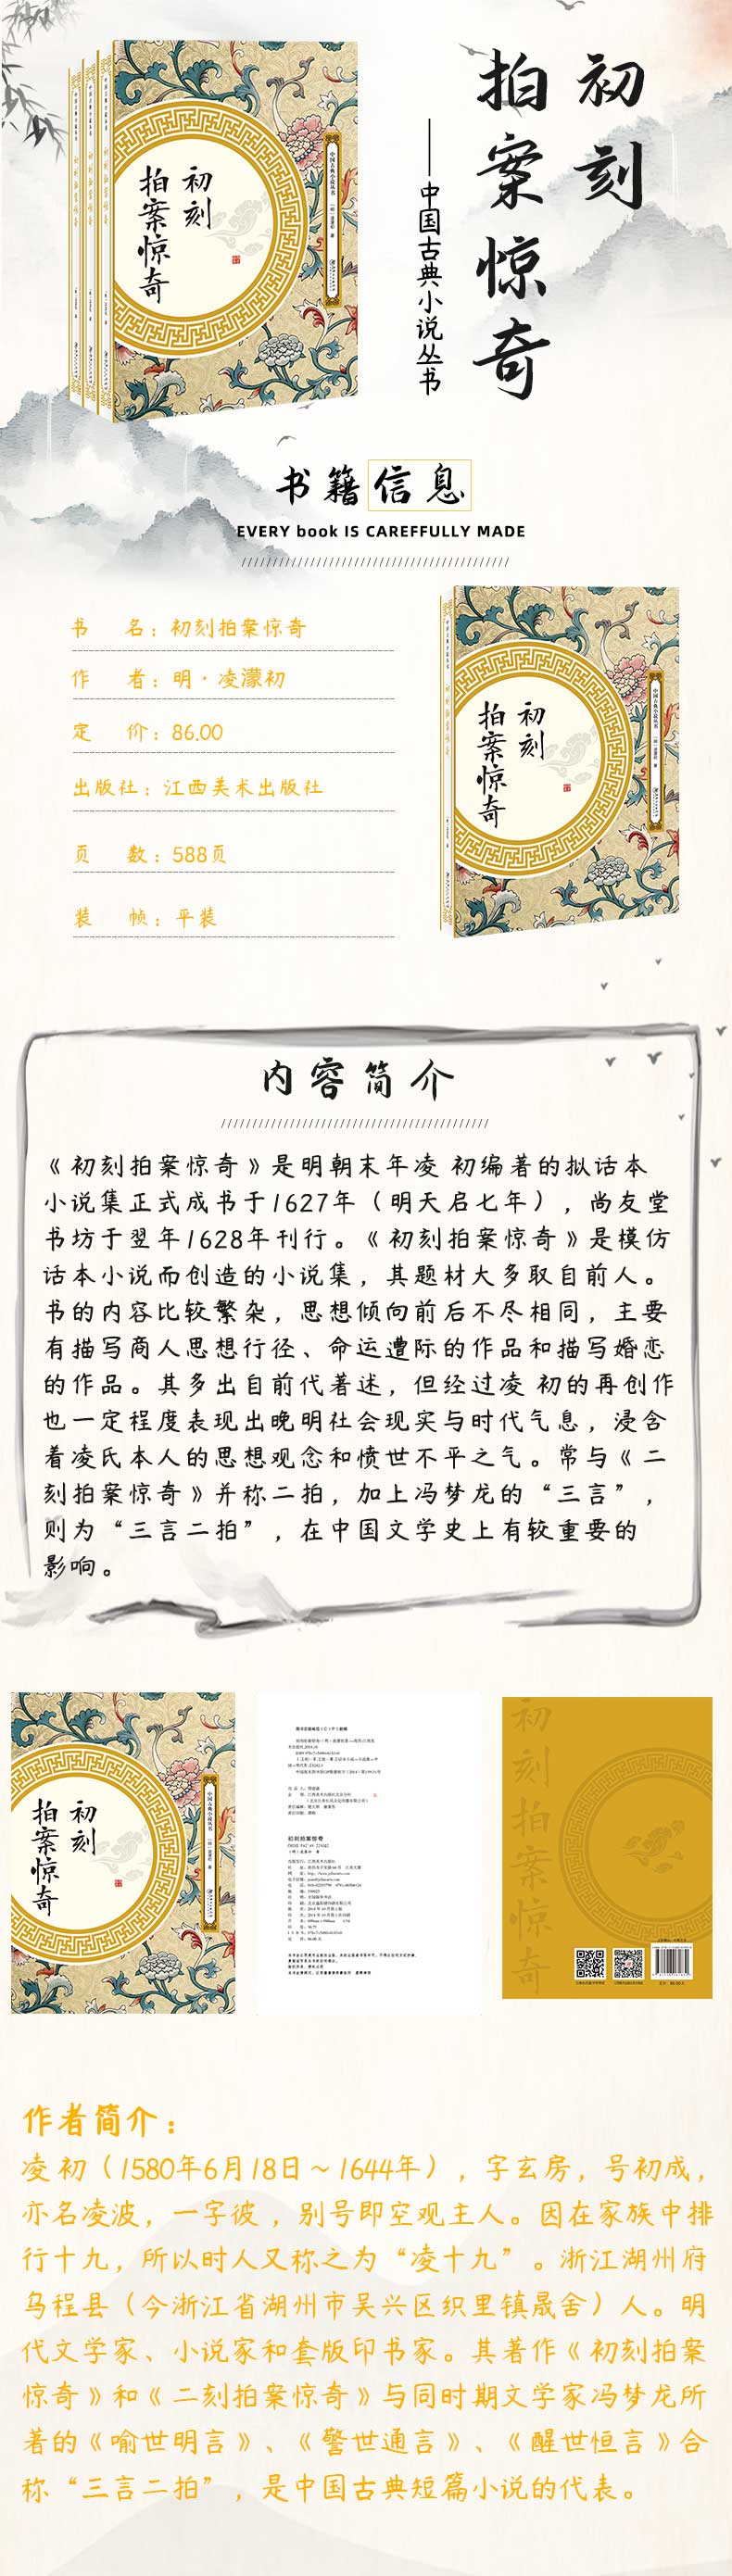 初刻
拍案惊奇
——中国古典小说丛书
初刻
拍案惊奇
中国古典小说丛书
书籍信息
EVERY book IS CAREFFULLY MADE
书 名：初刻拍案惊奇
作 者：明·凌濛初
定 价：86.00
出版社：江西美术出版社
页 数：588页
装 帧：平装
初刻
拍案惊奇
中国古典小说丛书
内容简介
《初刻拍案惊奇》是明朝末年凌 初编著的拟话本
小说集正式成书于1627年（明天启七年），尚友堂
书坊于翌年1628年刊行。《初刻拍案惊奇》是模仿
话本小说而创造的小说集，其题材大多取自前人。
书的内容比较繁杂，思想倾向前后不尽相同，主要
有描写商人思想行径、命运遭际的作品和描写婚恋
的作品。其多出自前代著述，但经过凌 初的再创作
也一定程度表现出晚明社会现实与时代气息，浸含
着凌氏本人的思想观念和愤世不平之气。常与《二
刻拍案惊奇》并称二拍，加上冯梦龙的“三言”，
则为“三言二拍”，在中国文学史上有较重要的
影响。
初刻
拍案惊奇
中国古典小说丛书
初刻拍案惊奇
初刻拍案惊奇
作者简介：
凌 初（1580年6月18日～1644年），字玄房，号初成，
亦名凌波，一字彼 ，别号即空观主人。因在家族中排
行十九，所以时人又称之为“凌十九”。浙江湖州府
乌程县（今浙江省湖州市吴兴区织里镇晟舍）人。明
代文学家、小说家和套版印书家。其著作《初刻拍案
惊奇》和《二刻拍案惊奇》与同时期文学家冯梦龙所
著的《喻世明言》、《警世通言》、《醒世恒言》合
称“三言二拍”，是中国古典短篇小说的代表。